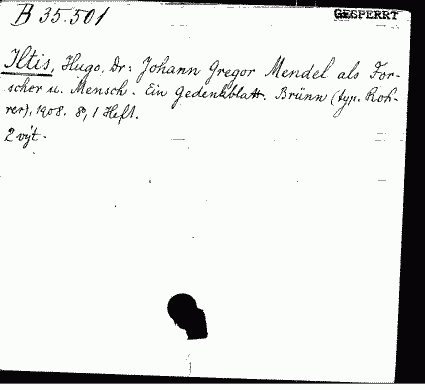 B 35.501
GESPERRT
Iltis, Hugo, Dr: Johann Gregor Mendel als For-
scher u. Mensch. Ein Gedenkblatt. Brünn (typ. Roh-
rer), 1908. 8°, 1 Heft.
2 výt.